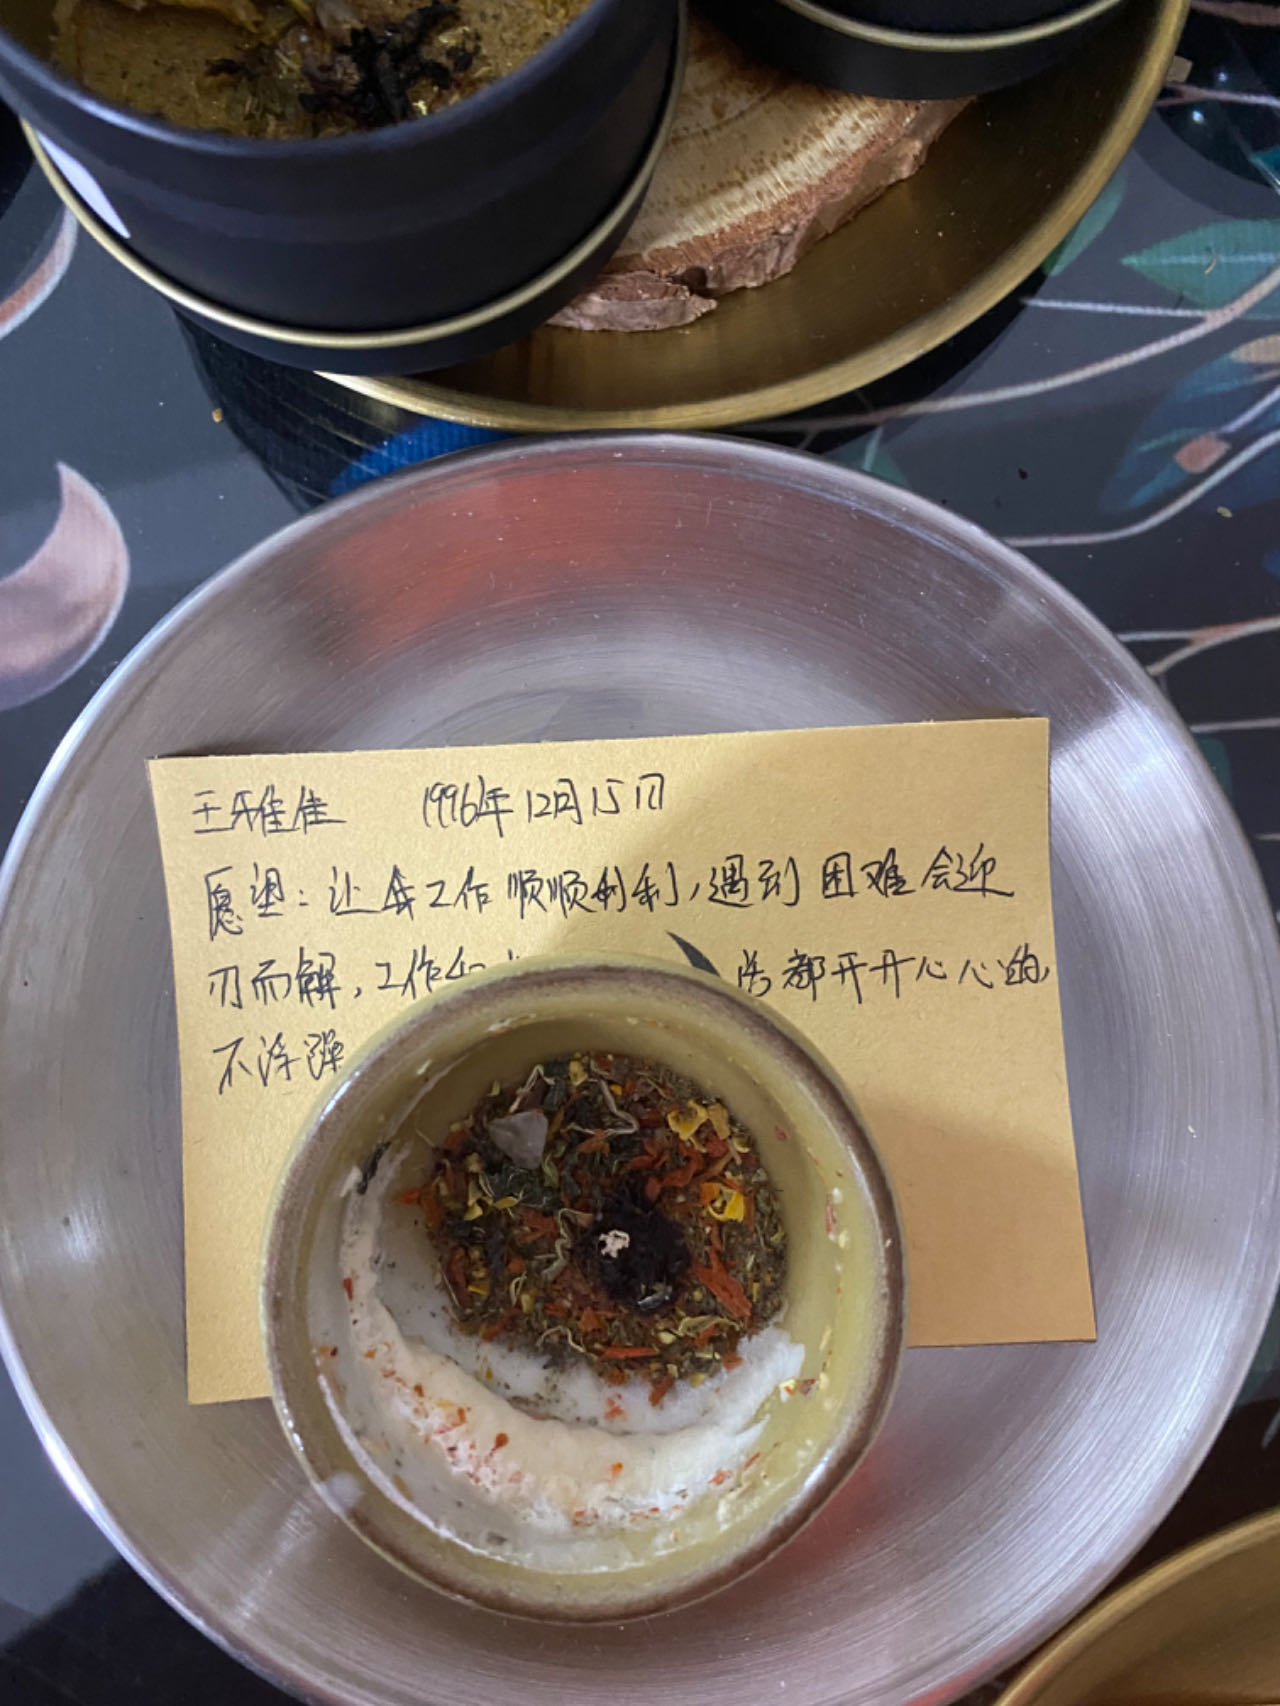 王雅佳 1996年12月15日
愿望：让我工作顺顺利利，遇到困难会迎
刃而解，工作和 活都开开心心的，
不浮躁